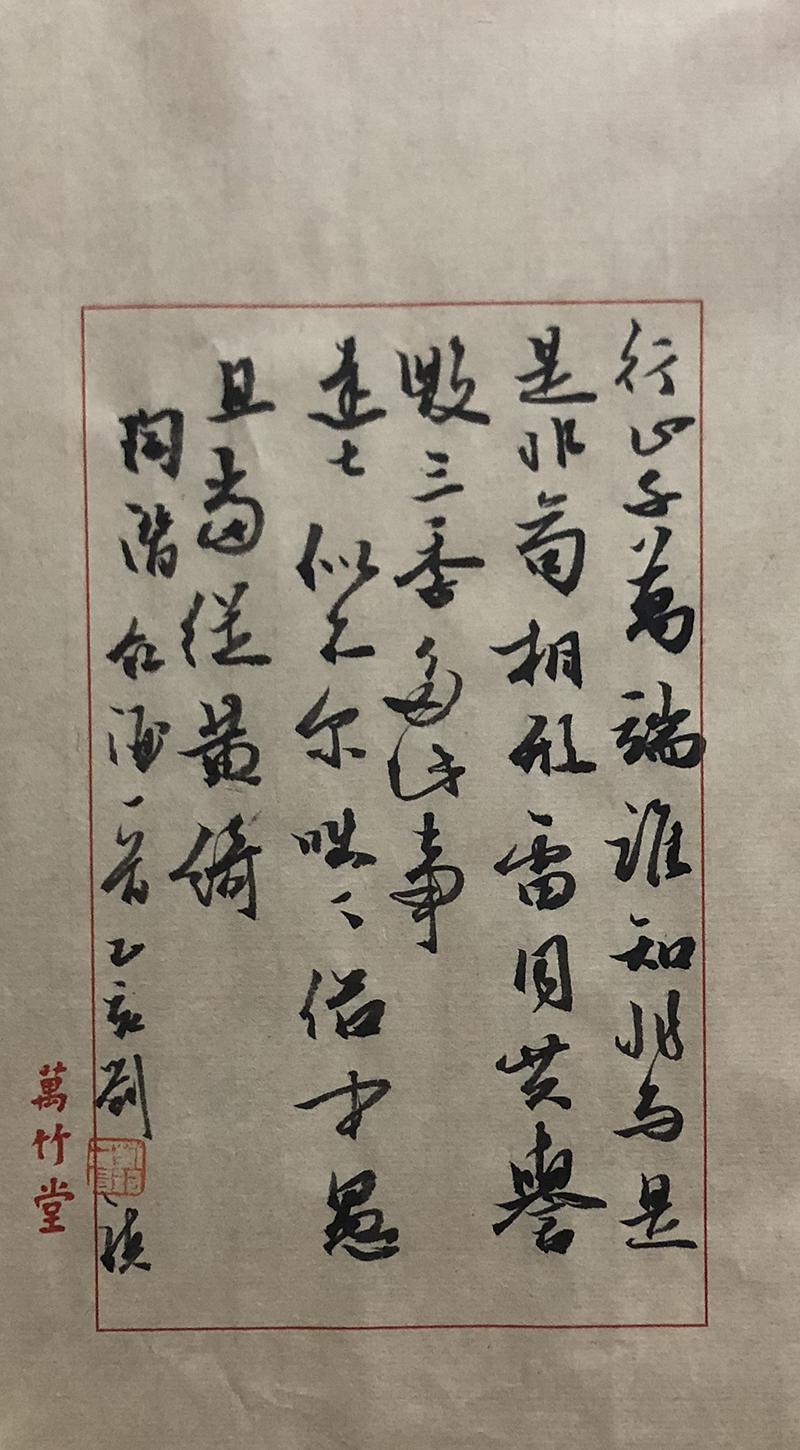 行止千萬端誰知非与是
是非苟相形雷同共譽
毀三季多此事
達士似不尔咄〻俗中愚
且當從黃綺
陶潛飲酒一首乙亥劉
萬竹堂